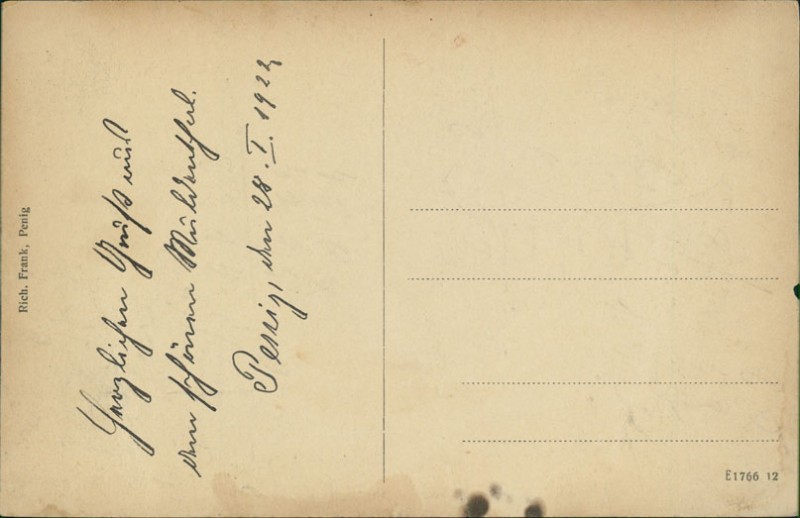 Herzlichen Gruß aus
dem schönen Muldenthal.
Penig, den 28. I. 1922
Rich. Frank, Penig
E1766 12